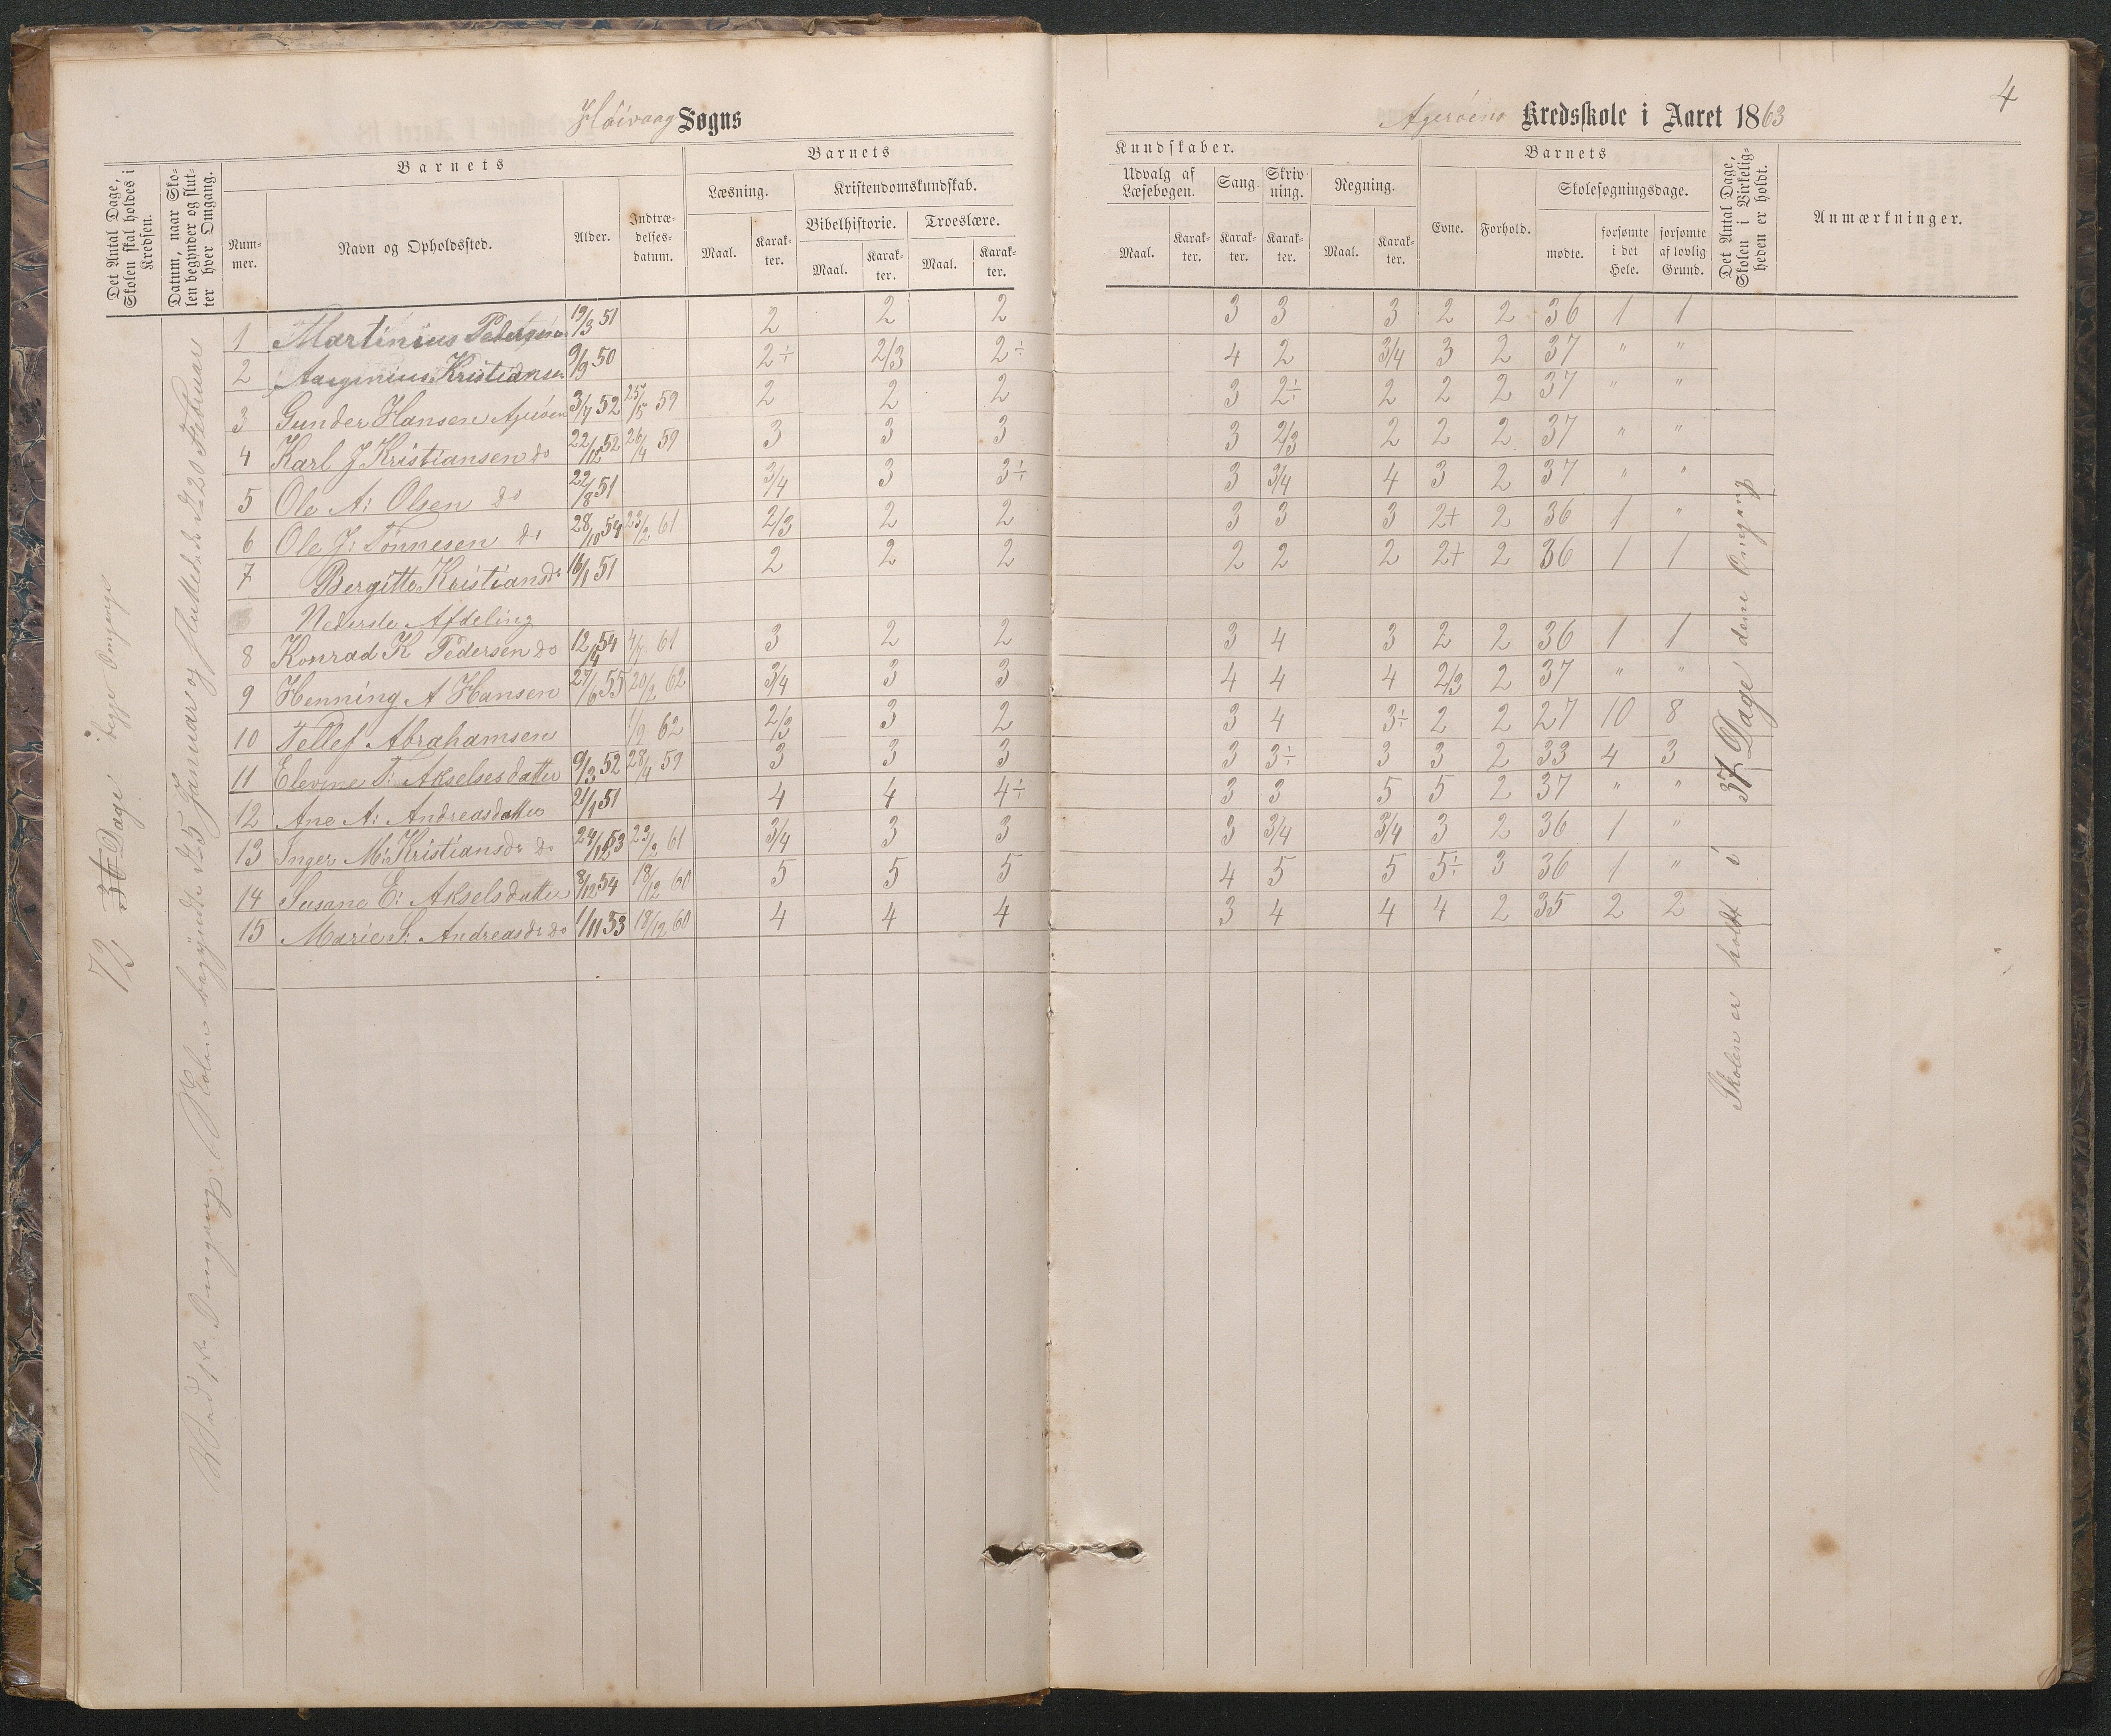 4
Høivaag Sogns
Agerøens Kredsskole i Aaret 1863
Det Antal Dage, Skolen skal holdes i Kredsen.
Datum, naar Skolen begynder og slutter hver Omgang.
Barnets
Nummer.
Navn og Opholdssted.
Alder.
Indtrædelsesdatum.
Barnets
Læsning.
Maal.
Karakter.
Kristendomskundskab.
Bibelhistorie.
Maal.
Karakter.
Troeslære.
Maal.
Karakter.
Kundskaber.
Udvalg af Læsebogen.
Maal.
Karakter.
Sang.
Karakter.
Skrivning.
Karakter.
Regning.
Maal.
Karakter.
Barnets
Evne.
Forhold.
Skolesøgningsdage.
mødte.
forsømte i det Hele.
forsømte af lovlig Grund.
Det Antal Dage, Skolen i Virkeligheden er holdt.
Anmærkninger.
1 Martinius Pedersen 19/3 51 2 2 2 3 3 3 2 2 36 1 1
2 Kristiansen 9/9 50 2÷ 2/3 2÷ 4 2 3/4 3 2 37 " "
3 Gunder Hansen Agerøen 3/7 52 25/5 59 2 2 2 3 2÷ 2 2 2 37 " "
4 Karl J Kristiansen do 22/12 52 26/4 59 3 3 3 3 2/3 2 2 2 37 " "
5 Ole A: Olsen do 22/8 51 3/4 3 3÷ 3 3/4 4 3 2 37 " "
6 Ole J: Tönnesen do 28/10 54 23/2 61 2/3 2 2 3 3 3 2+ 2 36 1 "
7 Bergitte Kristiansdr 16/1 51 2 2 2 2 2 2 2+ 2 36 1 1
Nederste Afdeling
8 Konrad K Pedersen do 12/4 54 4/7 61 3 2 2 3 4 3 2 2 36 1 1
9 Henning A Hansen 27/6 55 20/2 62 3/4 3 3 4 4 4 2/3 2 37 " "
10 Tellef Abrahamsen 1/9 62 2/3 3 2 3 4 3÷ 2 2 27 10 8
11 Elevine T: Akselsesdatter 9/3 52 28/4 59 3 3 3 3 3÷ 3 3 2 33 4 3
12 Ane A: Andreasdatter 21/1 51 4 4 4÷ 3 3 5 5 2 37 " "
13 Inger M: Kristiansdr do 24/12 53 23/2 61 3/4 3 3 3 3/4 3/4 3 2 36 1 "
14 Susane E: Akselsdatter 8/12 54 18/12 60 5 5 5 4 5 5 5÷ 3 36 1 "
15 Marie S: Andreasdr do 1/11 53 18/12 60 4 4 4 3 4 4 4 2 35 2 2
73, 36 Dage i begge Omgange
Ved 1ste Omgang. Skolen begyndte d. 5 Januar og sluttede d. 20 Februar
Skolen er holdt i 37 Dage denne Omgang